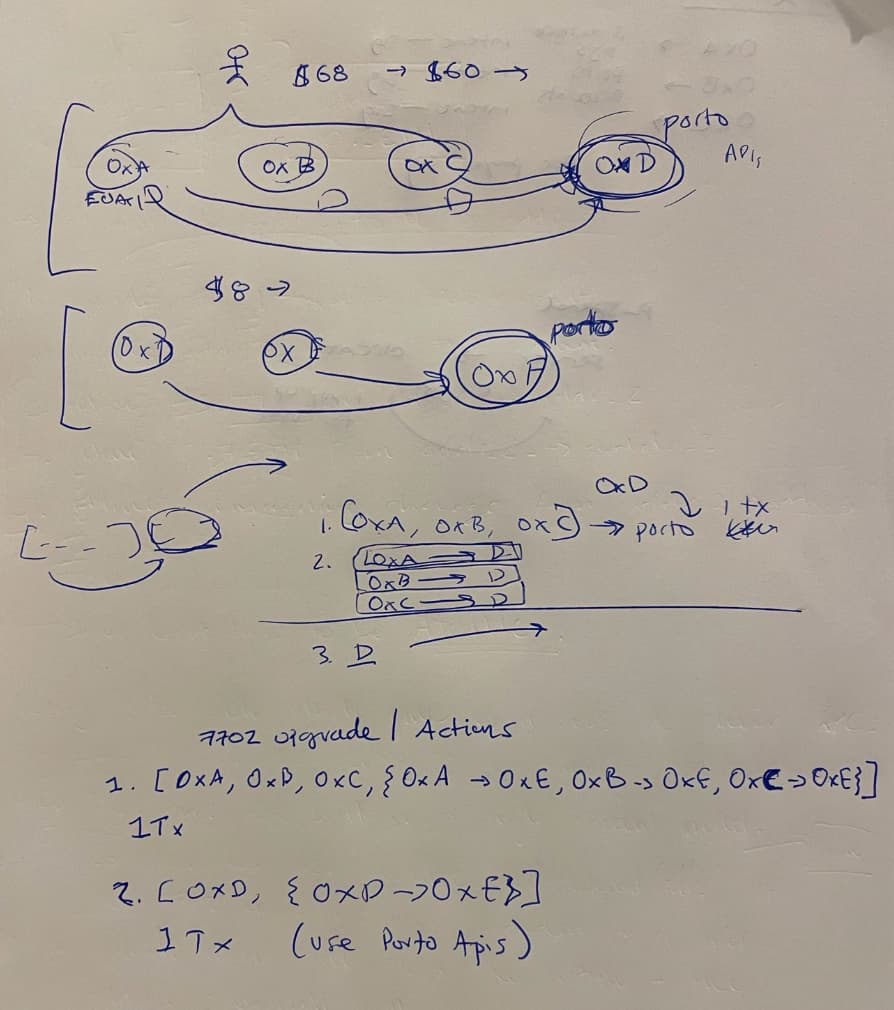 $68 → $60 →
porto
APIs
0xA 0xB 0xC 0xD
$8 →
0xF
porto
0xD
1. [0xA, 0xB, 0xC] → porto 1 tx
2. 0xA → D
0xB → D
0xC → D
3. D
7702 upgrade / Actions
1. [0xA, 0xB, 0xC, {0xA → 0xE, 0xB → 0xE, 0xC → 0xE}]
1Tx
2. [0xD, {0xD → 0xE}]
1Tx (use Porto Apis)